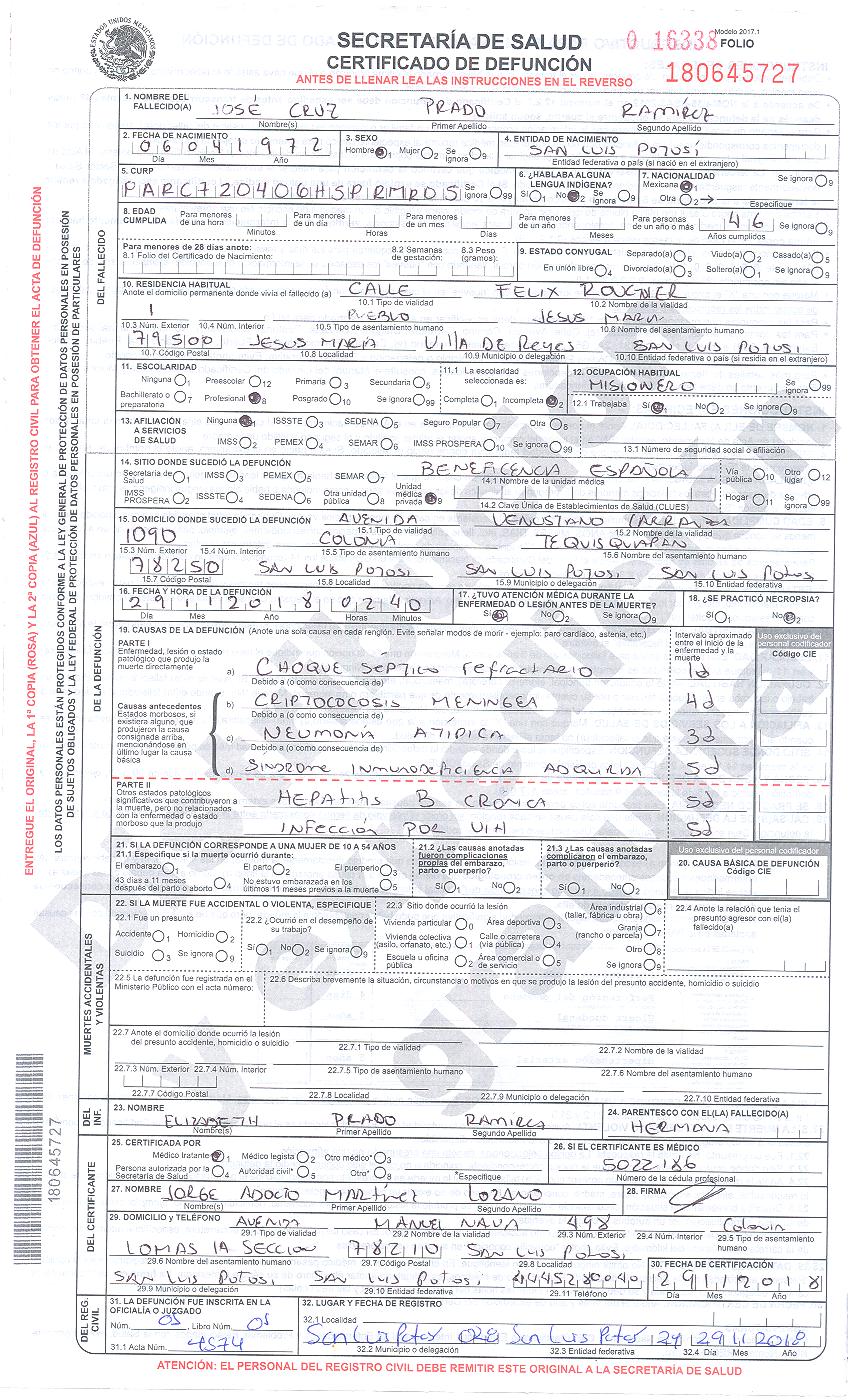 ESTADOS UNIDOS MEXICANOS
SECRETARÍA DE SALUD
CERTIFICADO DE DEFUNCIÓN
ANTES DE LLENAR LEA LAS INSTRUCCIONES EN EL REVERSO
0 16338 Modelo 2017.1
FOLIO
180645727
ENTREGUE EL ORIGINAL, LA 1ª COPIA (ROSA) Y LA 2ª COPIA (AZUL) AL REGISTRO CIVIL PARA OBTENER EL ACTA DE DEFUNCIÓN
LOS DATOS PERSONALES ESTÁN PROTEGIDOS CONFORME A LA LEY GENERAL DE PROTECCIÓN DE DATOS PERSONALES EN POSESIÓN
DE SUJETOS OBLIGADOS Y LA LEY FEDERAL DE PROTECCIÓN DE DATOS PERSONALES EN POSESIÓN DE PARTICULARES
180645727
DEL FALLECIDO
1. NOMBRE DEL FALLECIDO(A) JOSÉ CRUZ PRADO RAMÍREZ
Nombre(s) Primer Apellido Segundo Apellido
2. FECHA DE NACIMIENTO 06041972 3. SEXO Hombre 1 Mujer 2 Se ignora 9 4. ENTIDAD DE NACIMIENTO SAN LUIS POTOSÍ
Día Mes Año Entidad federativa o país (si nació en el extranjero)
5. CURP PARC720406HSPRMR05 Se ignora 99 6. ¿HABLABA ALGUNA LENGUA INDÍGENA? Sí 1 No 2 Se ignora 9 7. NACIONALIDAD Mexicana 1 Otra 2 Especifique Se ignora 9
8. EDAD CUMPLIDA Para menores de una hora Minutos Para menores de un día Horas Para menores de un mes Días Para menores de un año Meses Para personas de un año o más 46 Años cumplidos Se ignora 9
Para menores de 28 días anote:
8.1 Folio del Certificado de Nacimiento: 8.2 Semanas de gestación: 8.3 Peso (gramos):
9. ESTADO CONYUGAL Separado(a) 6 Viudo(a) 2 Casado(a) 5
En unión libre 4 Divorciado(a) 3 Soltero(a) 1 Se ignora 9
10. RESIDENCIA HABITUAL
Anote el domicilio permanente donde vivía el fallecido (a) CALLE FELIX
10.1 Tipo de vialidad 10.2 Nombre de la vialidad
1 PUEBLO JESUS MARIA
10.3 Núm. Exterior 10.4 Núm. Interior 10.5 Tipo de asentamiento humano 10.6 Nombre del asentamiento humano
79500 JESUS MARÍA VILLA DE REYES SAN LUIS POTOSI
10.7 Código Postal 10.8 Localidad 10.9 Municipio o delegación 10.10 Entidad federativa o país (si residía en el extranjero)
11. ESCOLARIDAD
Ninguna 1 Preescolar 12 Primaria 3 Secundaria 5
Bachillerato o preparatoria 7 Profesional 8 Posgrado 10 Se ignora 99
11.1 La escolaridad seleccionada es:
Completa 1 Incompleta 2
12. OCUPACIÓN HABITUAL
MISIONERO Se ignora 99
12.1 Trabajaba Sí 1 No 2 Se ignora 9
13. AFILIACIÓN A SERVICIOS DE SALUD
Ninguna 1 ISSSTE 3 SEDENA 5 Seguro Popular 7 Otra 8
IMSS 2 PEMEX 4 SEMAR 6 IMSS PROSPERA 10 Se ignora 99
13.1 Número de seguridad social o afiliación
DE LA DEFUNCIÓN
14. SITIO DONDE SUCEDIÓ LA DEFUNCIÓN BENEFICENCIA ESPAÑOLA
Secretaría de Salud 1 IMSS 3 PEMEX 5 SEMAR 7 Unidad médica privada 9 14.1 Nombre de la unidad médica Vía pública 10 Otro lugar 12
IMSS PROSPERA 2 ISSSTE 4 SEDENA 6 Otra unidad pública 8 14.2 Clave Única de Establecimientos de Salud (CLUES) Hogar 11 Se ignora 99
15. DOMICILIO DONDE SUCEDIÓ LA DEFUNCIÓN AVENIDA VENUSTIANO CARRANZA
15.1 Tipo de vialidad 15.2 Nombre de la vialidad
1090 COLONIA TEQUISQUIAPAN
15.3 Núm. Exterior 15.4 Núm. Interior 15.5 Tipo de asentamiento humano 15.6 Nombre del asentamiento humano
78250 SAN LUIS POTOSI SAN LUIS POTOSI SAN LUIS POTOSI
15.7 Código Postal 15.8 Localidad 15.9 Municipio o delegación 15.10 Entidad federativa
16. FECHA Y HORA DE LA DEFUNCIÓN
29112018 0240
Día Mes Año Horas Minutos
17. ¿TUVO ATENCIÓN MÉDICA DURANTE LA ENFERMEDAD O LESIÓN ANTES DE LA MUERTE?
Sí No 2 Se ignora 9
18. ¿SE PRACTICÓ NECROPSIA?
Sí 1 No 2
19. CAUSAS DE LA DEFUNCIÓN (Anote una sola causa en cada renglón. Evite señalar modos de morir - ejemplo: paro cardiaco, astenia, etc.)
Intervalo aproximado entre el inicio de la enfermedad y la muerte
Uso exclusivo del personal codificador
Código CIE
PARTE I
Enfermedad, lesión o estado patológico que produjo la muerte directamente
a) CHOQUE SÉPTICO refractario 1d
Debido a (o como consecuencia de)
Causas antecedentes
Estados morbosos, si existiera alguno, que produjeron la causa consignada arriba, mencionándose en último lugar la causa básica
b) CRIPTOCOCOSIS MENINGEA 4d
Debido a (o como consecuencia de)
c) NEUMONÍA ATÍPICA 3d
Debido a (o como consecuencia de)
d) SINDROME INMUNODEFICIENCIA ADQUIRIDA 5d
PARTE II
Otros estados patológicos significativos que contribuyeron a la muerte, pero no relacionados con la enfermedad o estado morboso que la produjo
HEPATITIS B CRONICA 5d
INFECCIÓN POR VIH 5d
21. SI LA DEFUNCIÓN CORRESPONDE A UNA MUJER DE 10 A 54 AÑOS
21.1 Especifique si la muerte ocurrió durante:
El embarazo 1 El parto 2 El puerperio 3
43 días a 11 meses después del parto o aborto 4 No estuvo embarazada en los últimos 11 meses previos a la muerte 5
21.2 ¿Las causas anotadas fueron complicaciones propias del embarazo, parto o puerperio?
Sí 1 No 2
21.3 ¿Las causas anotadas complicaron el embarazo, parto o puerperio?
Sí 1 No 2
Uso exclusivo del personal codificador
20. CAUSA BÁSICA DE DEFUNCIÓN
Código CIE
MUERTES ACCIDENTALES Y VIOLENTAS
22. SI LA MUERTE FUE ACCIDENTAL O VIOLENTA, ESPECIFIQUE
22.1 Fue un presunto
Accidente 1 Homicidio 2
Suicidio 3 Se ignora 9
22.2 ¿Ocurrió en el desempeño de su trabajo?
Sí 1 No 2 Se ignora 9
22.3 Sitio donde ocurrió la lesión
Vivienda particular 0 Área deportiva 3 Área industrial (taller, fábrica u obra) 6
Vivienda colectiva (asilo, orfanato, etc.) 1 Calle o carretera (vía pública) 4 Granja (rancho o parcela) 7
Escuela u oficina pública 2 Área comercial o de servicio 5 Otro 8
Se ignora 9
22.4 Anote la relación que tenía el presunto agresor con el(la) fallecido(a)
22.5 La defunción fue registrada en el Ministerio Público con el acta número:
22.6 Describa brevemente la situación, circunstancia o motivos en que se produjo la lesión del presunto accidente, homicidio o suicidio
22.7 Anote el domicilio donde ocurrió la lesión del presunto accidente, homicidio o suicidio
22.7.1 Tipo de vialidad 22.7.2 Nombre de la vialidad
22.7.3 Núm. Exterior 22.7.4 Núm. Interior 22.7.5 Tipo de asentamiento humano 22.7.6 Nombre del asentamiento humano
22.7.7 Código Postal 22.7.8 Localidad 22.7.9 Municipio o delegación 22.7.10 Entidad federativa
DEL INF.
23. NOMBRE ELIZABETH PRADO RAMIREZ
Nombre(s) Primer Apellido Segundo Apellido
24. PARENTESCO CON EL(LA) FALLECIDO(A)
HERMANA
DEL CERTIFICANTE
25. CERTIFICADA POR
Médico tratante 1 Médico legista 2 Otro médico* 3
Persona autorizada por la Secretaría de Salud 4 Autoridad civil* 5 Otro* 8 *Especifique
26. SI EL CERTIFICANTE ES MÉDICO
5022186
Número de la cédula profesional
27. NOMBRE JORGE ADOLFO MARTINEZ LOZANO
Nombre(s) Primer Apellido Segundo Apellido
28. FIRMA
29. DOMICILIO y TELÉFONO AVENIDA MANUEL NAVA 498 Colonia
29.1 Tipo de vialidad 29.2 Nombre de la vialidad 29.3 Núm. Exterior 29.4 Núm. Interior 29.5 Tipo de asentamiento humano
LOMAS 1A SECCION 78210 SAN LUIS POTOSI
29.6 Nombre del asentamiento humano 29.7 Código Postal 29.8 Localidad
SAN LUIS POTOSI SAN LUIS POTOSI
29.9 Municipio o delegación 29.10 Entidad federativa 29.11 Teléfono
30. FECHA DE CERTIFICACIÓN
29112018
Día Mes Año
DEL REG. CIVIL
31. LA DEFUNCIÓN FUE INSCRITA EN LA OFICIALÍA O JUZGADO
Núm. 05 Libro Núm. 05
31.1 Acta Núm. 4574
32. LUGAR Y FECHA DE REGISTRO
32.1 Localidad
San Luis Potosi 028 San Luis Potosi 24 29 11 2018
32.2 Municipio o delegación 32.3 Entidad federativa 32.4 Día Mes Año
ATENCIÓN: EL PERSONAL DEL REGISTRO CIVIL DEBE REMITIR ESTE ORIGINAL A LA SECRETARÍA DE SALUD